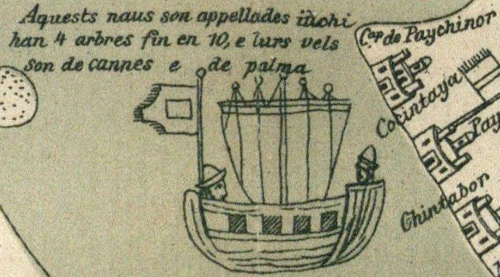 Aquests naus son appellades iñchi
han 4 arbres fin en 10, e lurs vels
son de cannes e de palma
Cap de Paychinor
Cocintaya
Pay
Chintabor